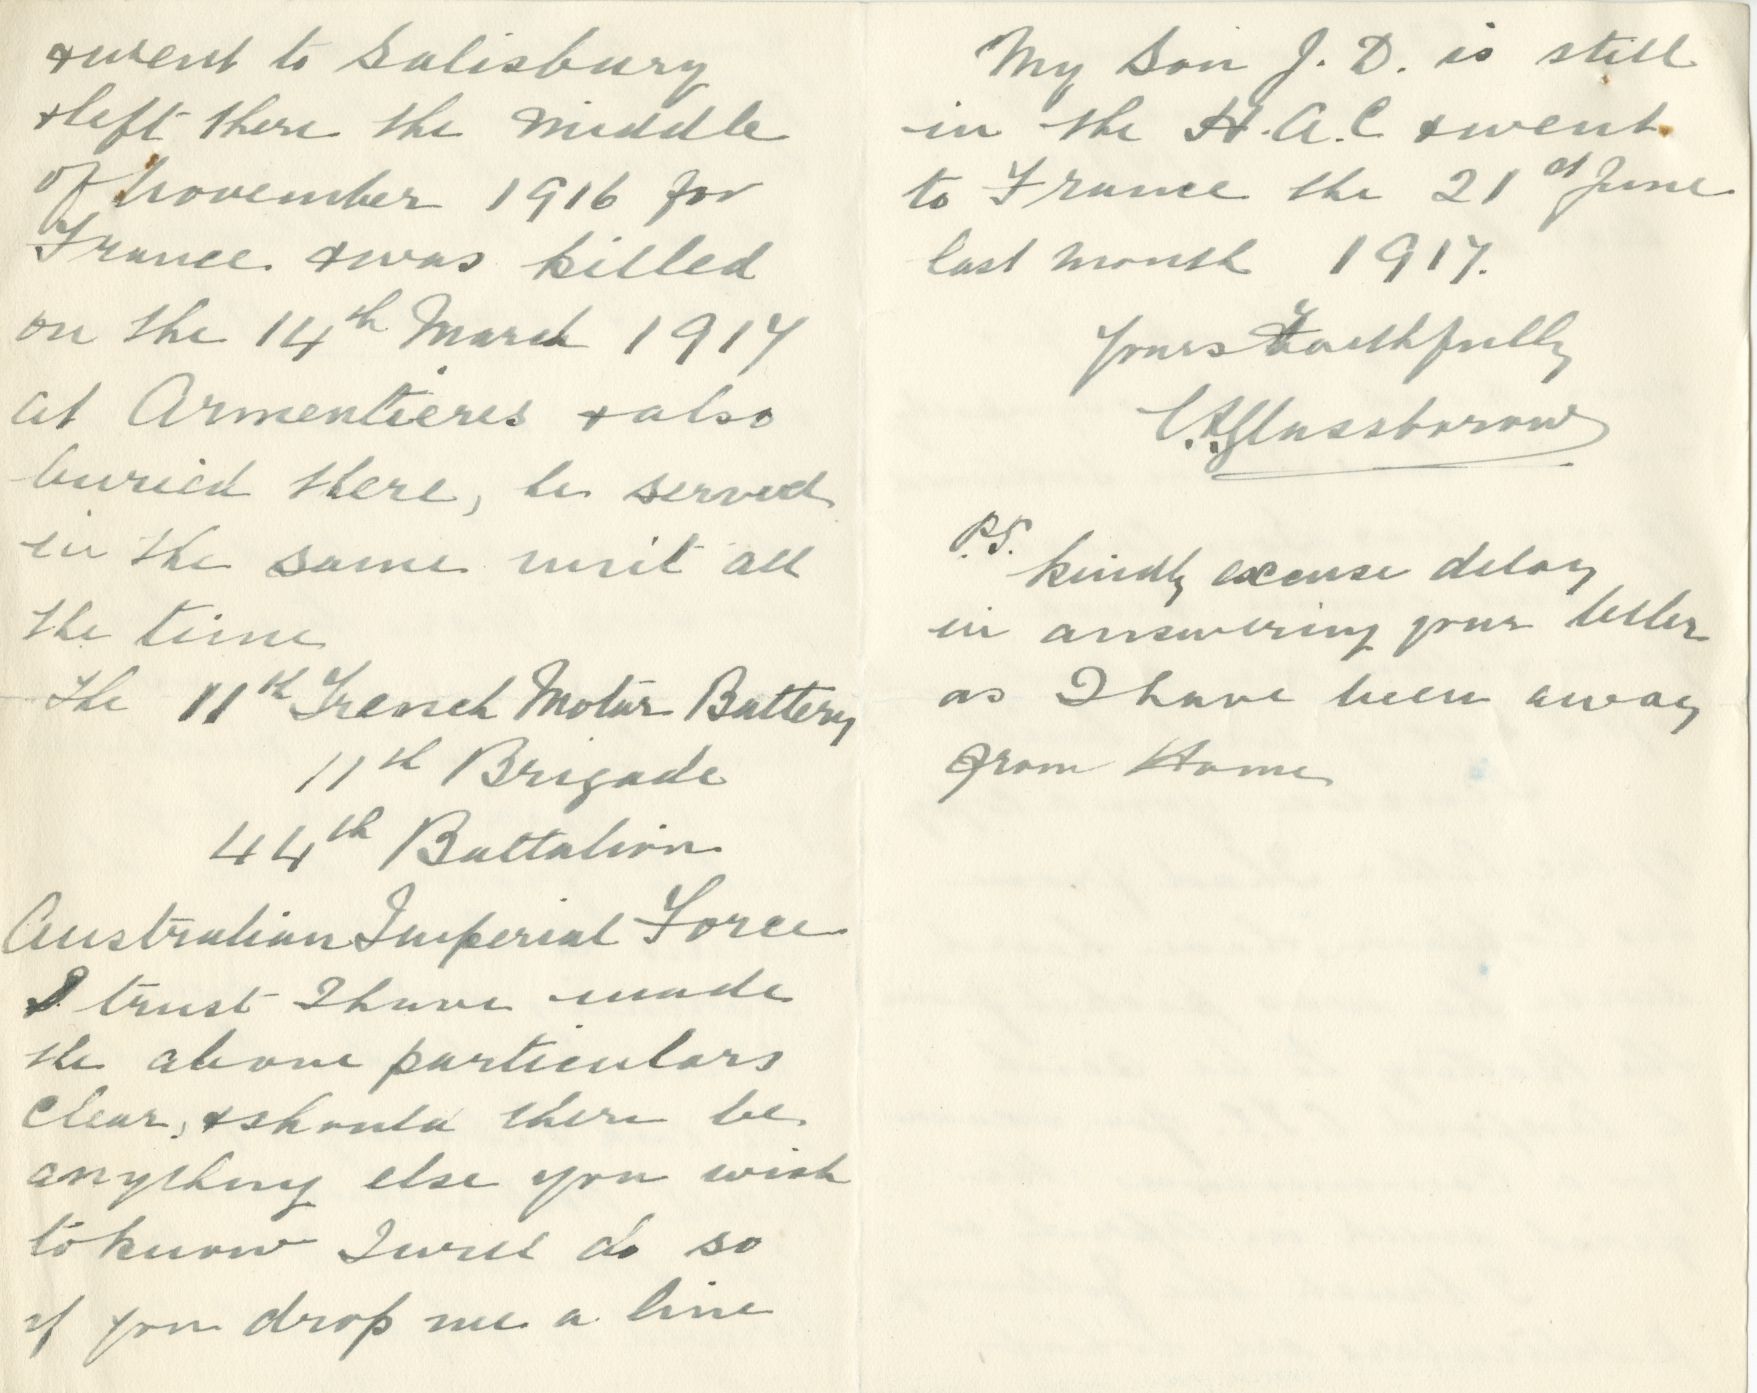 & went to Salisbury
& left there the middle
of November 1916 for
France & was killed
on the 14th March 1917
at Armentieres & also
buried there, he served
in the same unit all
the time
the 11th Trench Motar Battery
11th Brigade
44th Battalion
Australian Imperial Force
I trust I have made
the above particulars
clear, & should there be
anything else you wish
to know I will do so
if you drop me a line
My Son J. D. is still
in the H.A.C & went
to France the 21st June
last month 1917.
Yours Faithfully
C.A. Glassborow
P.S.
kindly excuse delay
in answering your letter
as I have been away
from Home